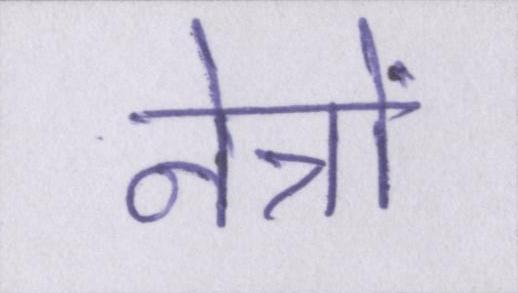 नेत्रों